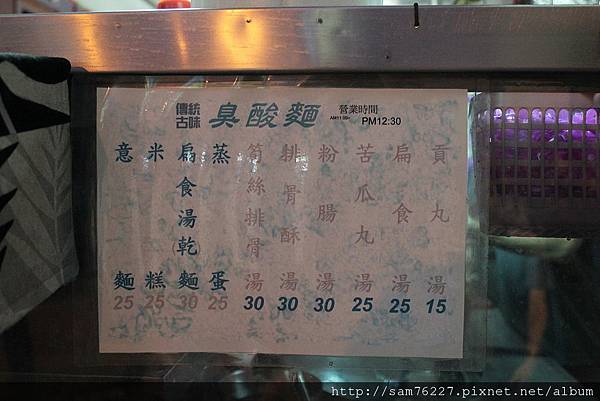 傳統古味 臭酸麵 營業時間
PM12:30
貢丸湯 15
扁食湯 25
苦瓜丸湯 25
粉腸湯 30
排骨酥湯 30
筍絲排骨湯 30
蒸蛋 25
扁食湯乾麵 30
米糕 25
意麵 25
http://sam76227.pixnet.net/album